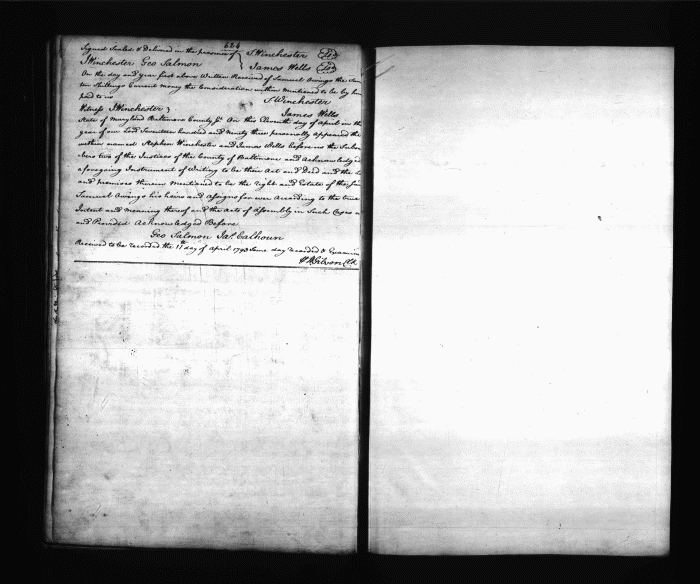 624
Signed Sealed & Delivered in the presence of } S. Winchester
J Winchester Geo Salmon James Wells
On the day and year first above Written Received of Samuel Owings the Sum
ten Shillings Current money the Consideration within Mentioned to be by him
paid to us S. Winchester
Witness J Winchester } James Wells
State of Maryland Baltimore County Sc. On this Eleventh day of April in the
year of our Lord Seventeen hundred and Ninety three personally appeared the
within named Stephen Winchester and James Wells before us the Subs
bers two of the Justices of the County of Baltimore and Acknowledged
aforegoing Instrument of Writing to be their Act and Deed and the L
and premises therein Mentioned to be the right and Estate of the
Samuel Owings his heirs and Assigns for ever According to the true
Intent and meaning thereof and the Acts of Assembly in Such Cases
and Provided Acknowledged Before
Geo Salmon Jas. Calhoun
Received to be recorded the 11th day of April 1793 Same day recorded & Examined
Wm Gibson Clk